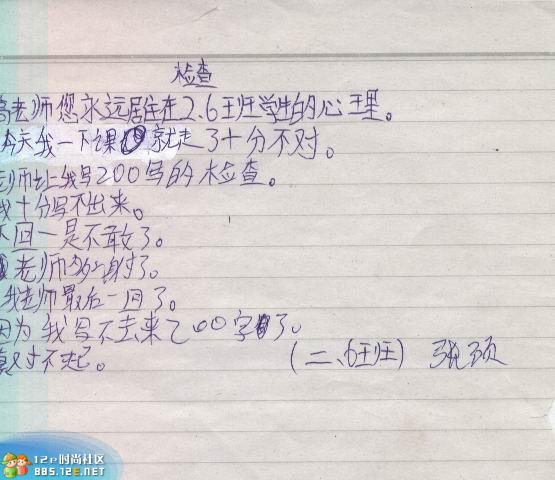 检查
高老师您永远居住在2.6班学生的心理。
今天我一下课就走了十分不对。
老师让我写200写的检查。
我十分写不出来。
下回一是不敢了。
老师多谢了。
我老师最后一回了。
因为我写不去来200字了。
真对不起。
(二、6班) 张顶
12e时尚社区
BBS.12E.NET